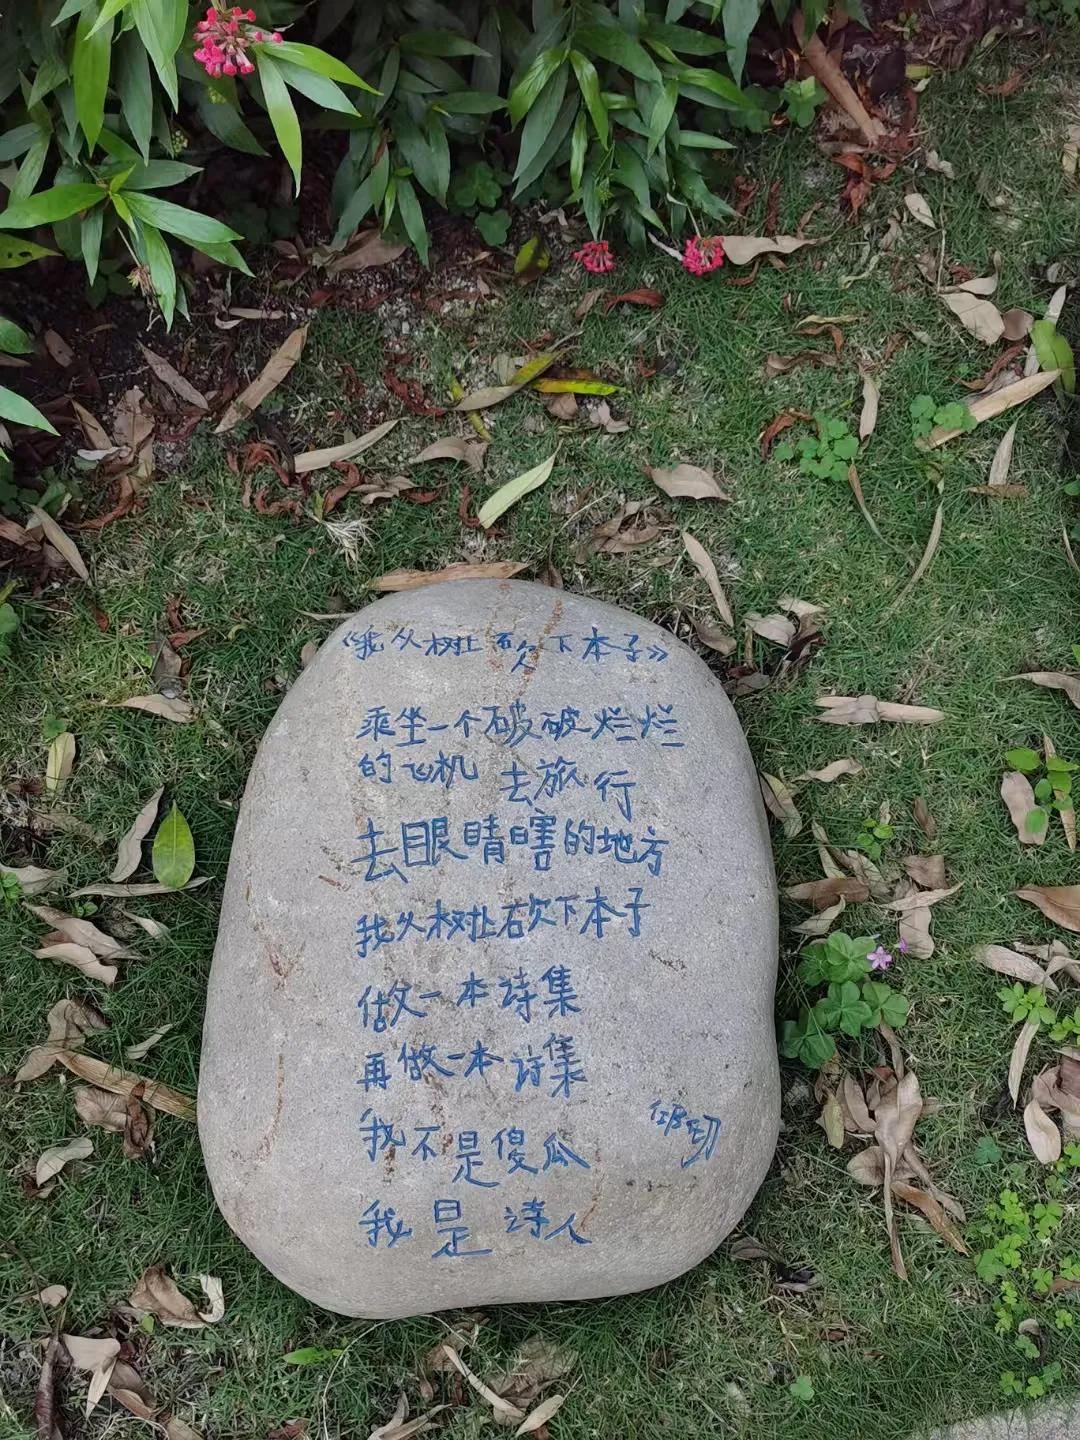 《我从树上砍下本子》
乘坐一个破破烂烂
的飞机 去旅行
去眼睛瞎的地方
我从树上砍下本子
做一本诗集
再做一本诗集
我不是傻瓜
我是诗人